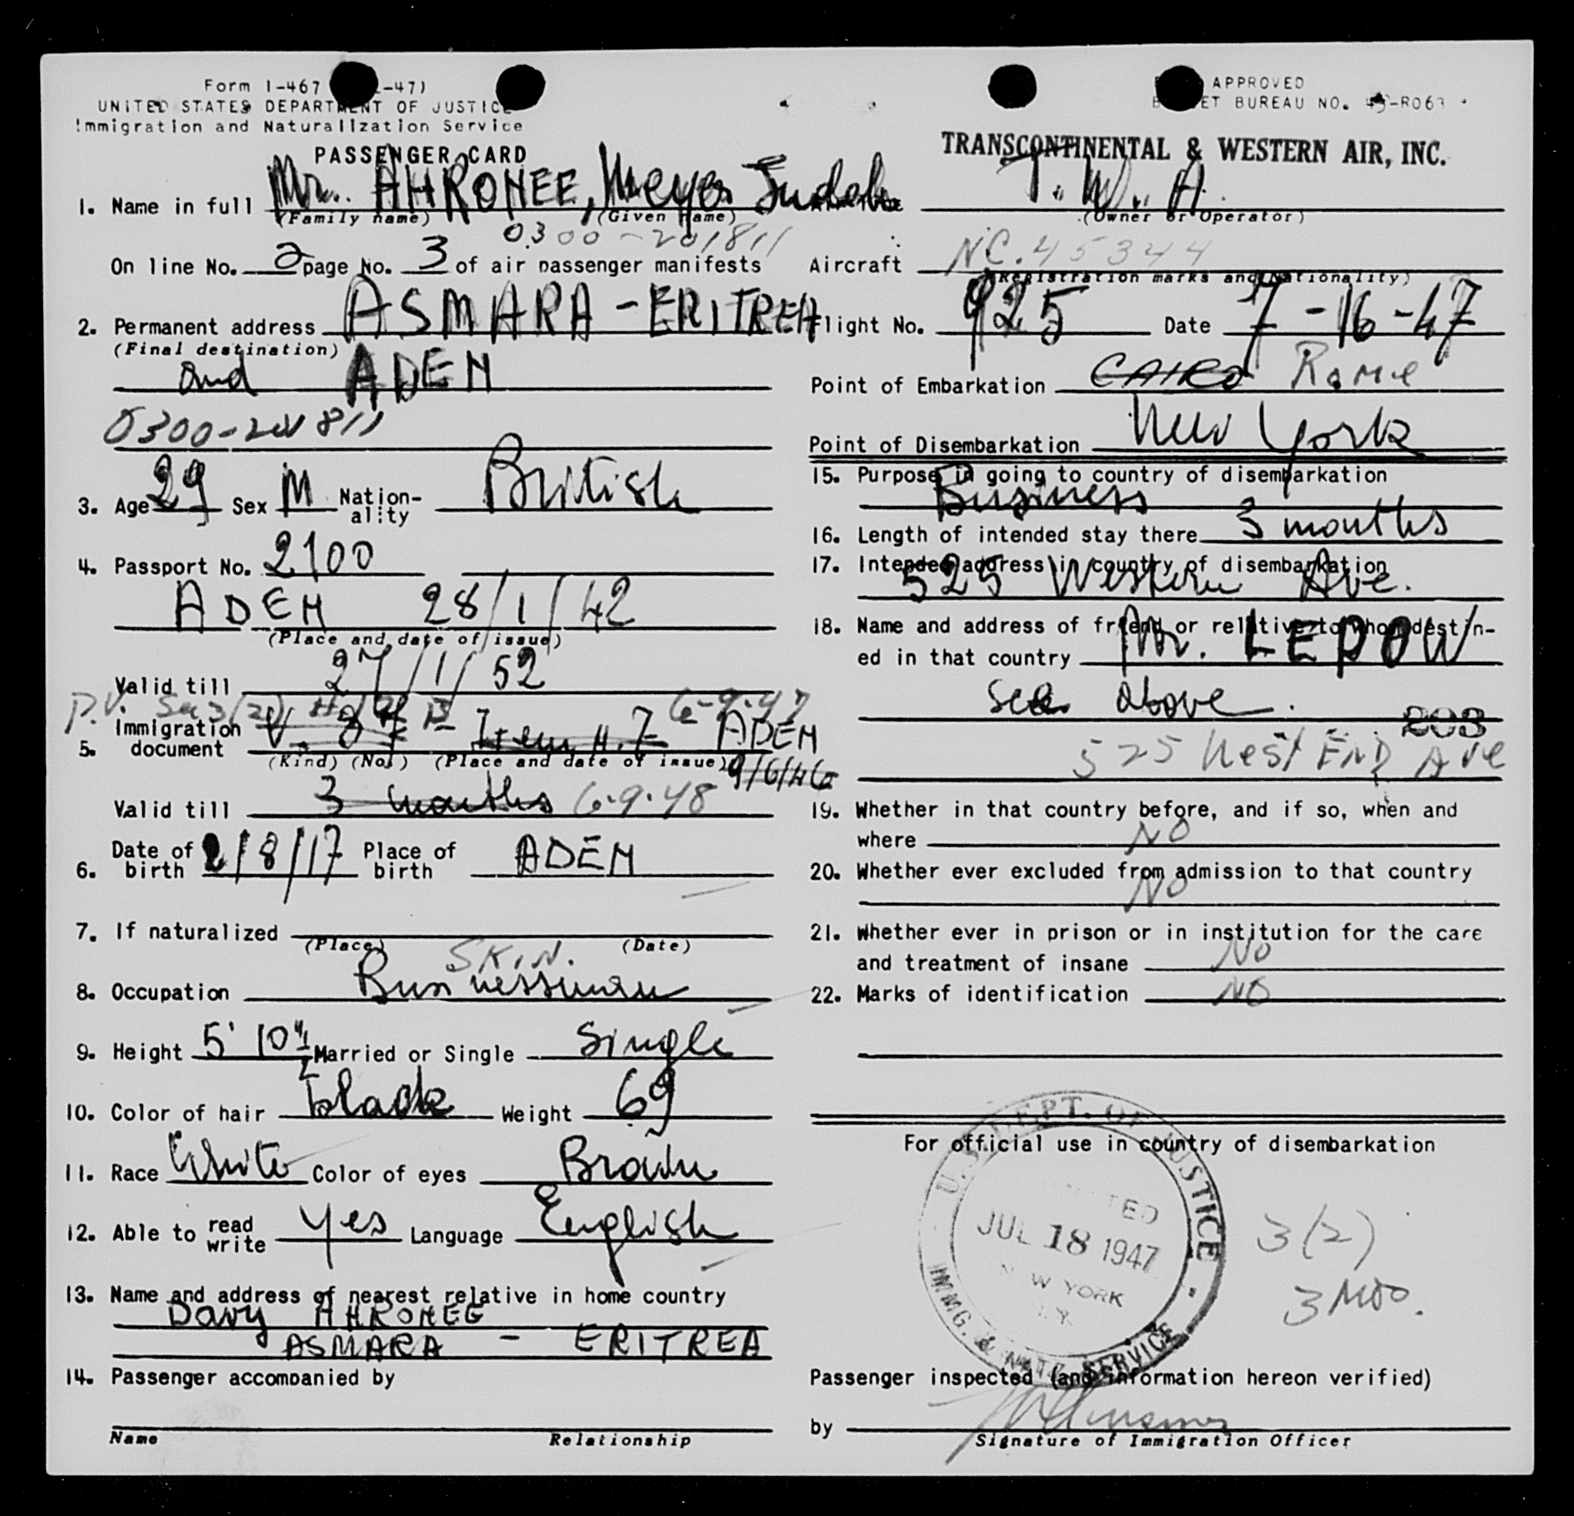 Form I-467 -47)
UNITED STATES DEPARTMENT OF JUSTICE
Immigration and Naturalization Service
PASSENGER CARD
APPROVED
BUREAU NO. 43-R063
TRANSCONTINENTAL & WESTERN AIR, INC.
1. Name in full Mr. AHRONEE, Meyer Judah
(Family name) (Given Name)
0300-201811
On line No. 2 page No. 3 of air passenger manifests
2. Permanent address ASMARA - ERITREA
(Final destination)
and ADEN
0300-201811
3. Age 29 Sex M Nationality British
4. Passport No. 2100
ADEN 28/1/42
(Place and date of issue)
Valid till 27/1/52
P.V. Sec 3(2) 6-9-47
5. Immigration document V. Item H.7 ADEN
(Kind) (No.) (Place and date of issue) 9/6/46
Valid till 3 months 6-9-48
6. Date of birth 2/8/17 Place of birth ADEN
7. If naturalized
(Place) (Date)
SKIN.
8. Occupation Businessman
9. Height 5' 10"½ Married or Single Single
10. Color of hair black Weight 69
11. Race White Color of eyes Brown
12. Able to read write Yes Language English
13. Name and address of nearest relative in home country
Davy AHRONEE
ASMARA - ERITREA
14. Passenger accompanied by
Name Relationship
T.W.A.
(Owner or Operator)
Aircraft NC.45344
(Registration marks and Nationality)
Flight No. 925 Date 7-16-47
Point of Embarkation CAIRO Rome
Point of Disembarkation New York
15. Purpose in going to country of disembarkation
Business
16. Length of intended stay there 3 months
17. Intended address in country of disembarkation
525 Western Ave.
18. Name and address of friend or relative to whom destin-
ed in that country Mr. LEPOW
See above.
525 West END Ave
19. Whether in that country before, and if so, when and
where NO
20. Whether ever excluded from admission to that country
NO
21. Whether ever in prison or in institution for the care
and treatment of insane No
22. Marks of identification NO
For official use in country of disembarkation
U.S. DEPT. OF JUSTICE
JUL 18 1947
NEW YORK
N.Y.
IMMG. & NATZ. SERVICE
3(2)
3 Mos.
Passenger inspected (and information hereon verified)
by
Signature of Immigration Officer